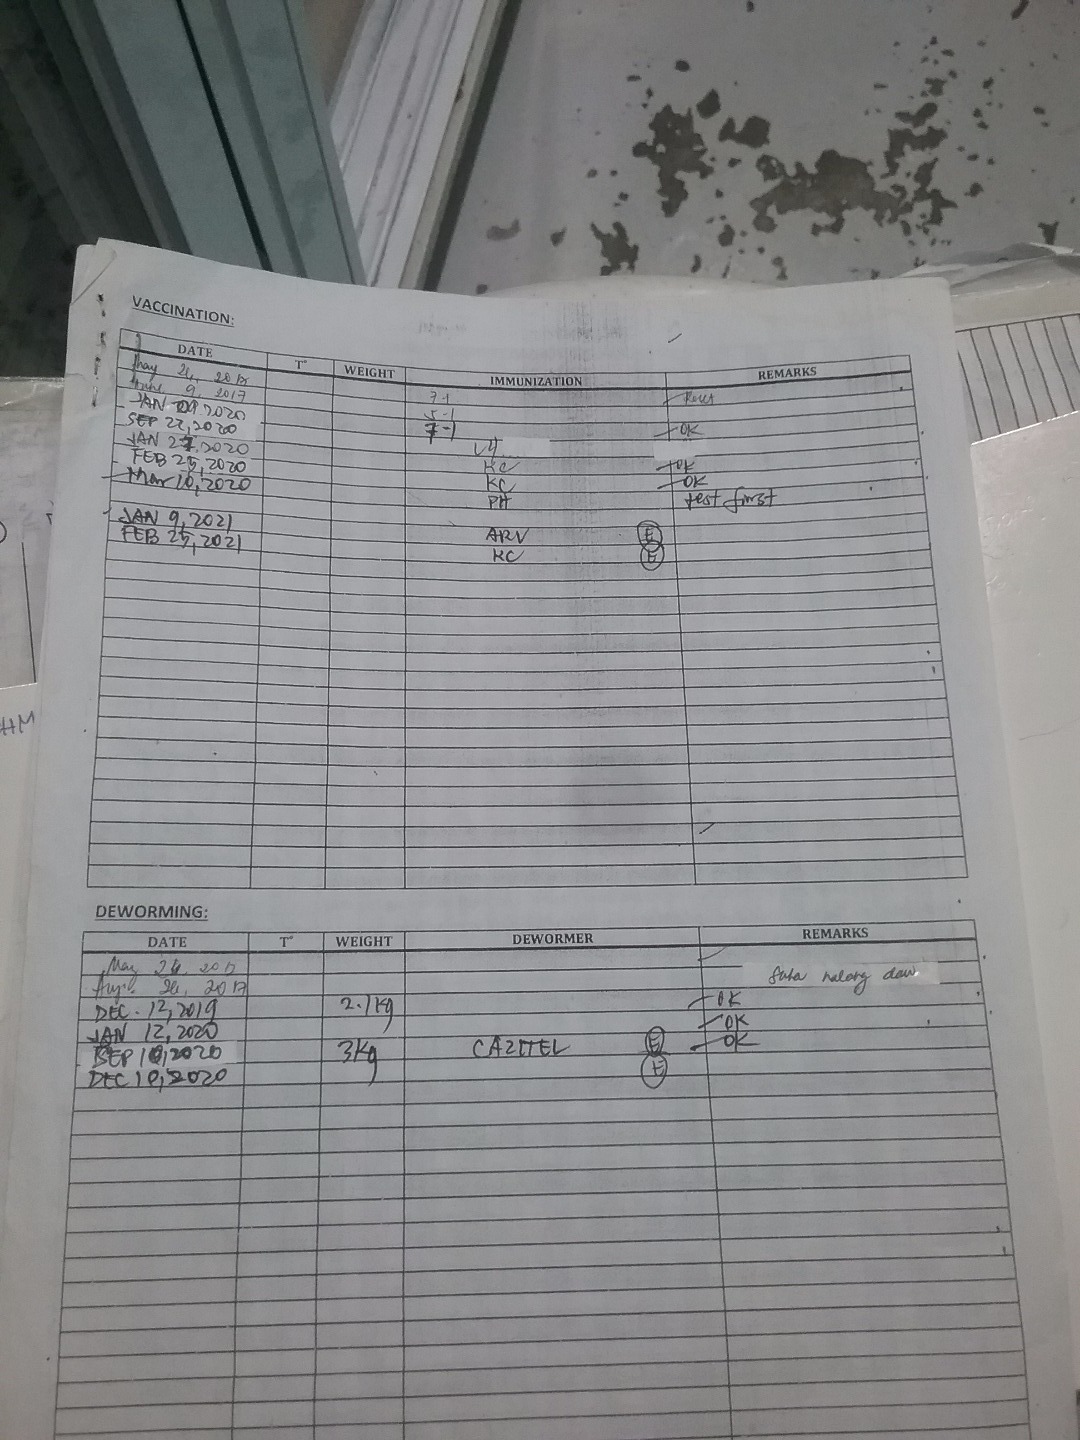 VACCINATION:
DATE T° WEIGHT IMMUNIZATION REMARKS
May 24, 2017
June 9, 2017 7-1
JAN 09, 2020 5-1
SEP 22, 2020 7-1 OK
JAN 27, 2020
FEB 25, 2020 KC OK
Mar 10, 2020 KC OK
PH test first
JAN 9, 2021 ARV E
FEB 25, 2021 KC E
DEWORMING:
DATE T° WEIGHT DEWORMER REMARKS
May 24, 2017
26, 2017 nalang daw
DEC. 12, 2019 2.1kg OK
JAN 12, 2020 OK
SEP 10, 2020 3kg CAZITEL E OK
DEC 10, 2020 E
HM